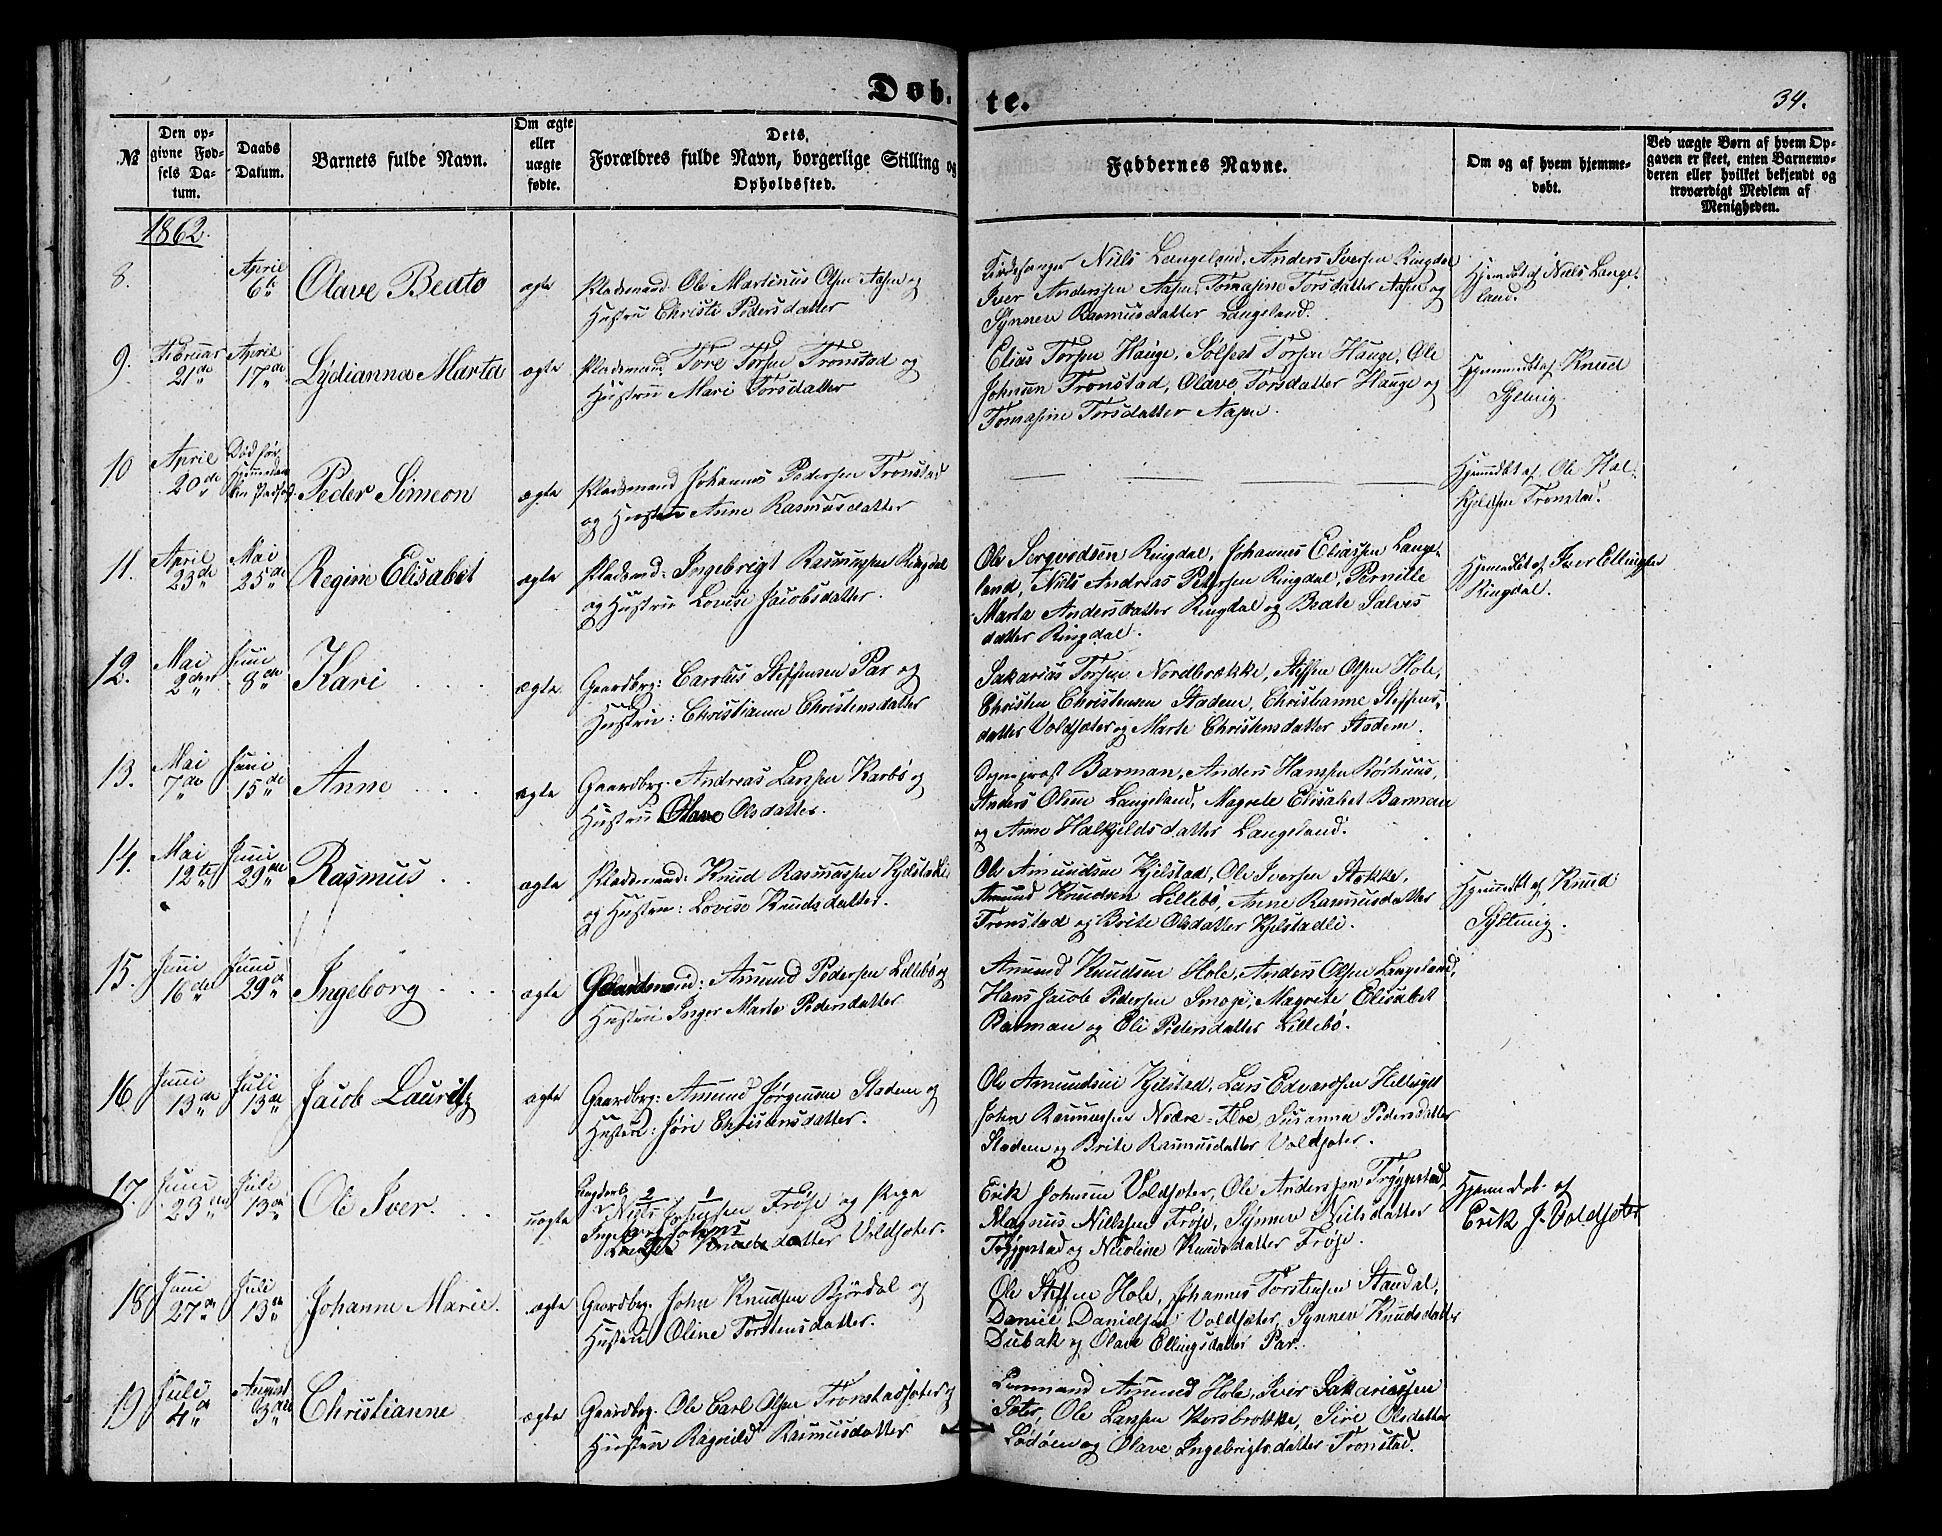 Døb-
te.
34.
№
Den op-
givne Fød-
sels Da-
tum.
Daabs
Datum.
Barnets fulde Navn.
Om ægte
eller
uægte
fødte.
Dets,
Forældres fulde Navn, borgerlige Stilling og
Opholdssted.
Faddernes Navne.
Om og af hvem hjemme-
døbt.
Ved uægte Børn af hvem Op-
gaven er skeet, enten Barnemo-
deren eller hvilket bekjendt og
troværdigt Medlem af
Menigheden.
1862.
8.
April
6te
Olave Beate
ægte
Pladsmand Ole Martinus Olsen Aasen og
Hustru Christi Pedersdatter
Kirkesanger Niels Langeland, Anders Iversen Ringdal
Iver Anderssen Aasen, Tomasine Torsdatter Aasen og
Synnev Rasmusdatter Langeland.
Hjemdbt af Niels Lange-
land.
9.
Februar
21de
April
17de
Lydianna Marta
ægte
Pladsmand Tore Torsen Tronstad og
Hustru Mari Torsdatter
Elias Torsen Hauge, Solfest Torsen Hauge, Ole
Johnsen Tronstad, Olave Torsdatter Hauge og
Tomasine Torsdatter Aasen.
Hjemmedbt af Knud
Sylling.
10
April
20de
Død før
Peder Simeon
ægte
Pladsmand Johannes Pedersen Tronstad
og Hustru Anne Rasmusdatter
Hjemmdbt af Ole Hal-
kjeldsen Tronstad.
11.
April
23de
Mai
25de
Regine Elisabet
ægte
Pladsmd: Ingebrigt Rasmussen Ringdal
og Hustru Lovise Jacobsdatter.
Ole Ringdal, Johannes Eliassen Lange-
land, Nils Andreas Petersen Ringdal, Pernille
Marta Andersdatter Ringdal og Beate Salves
datter Ringdal.
Hjemmedbt af Iver Ellingsen
Ringdal.
12.
Mai
2den
Juni
8de
Kari
ægte
Gaardbrg: Carolus Steffensen Par og
Hustru: Christianne Christensdatter
Sakarias Torsen Nordbrække, Steffen Olsen Hole,
Christen Christensen Stadem, Christianne Steffens-
datter Voldsæter og Marte Christensdatter Stadem.
13.
Mai
7de
Juni
15de
Anne
ægte
Gaardbrg: Andreas Larssen Karbø og
Hustru Olave Olsdatter.
Sogneprest Barman, Anders Hanssen Rørhuus,
Anders Olsen Langeland, Magrete Elisabet Barman
og Anne Halkjeldsdatter Langeland.
14.
Mai
12te
Juni
29de
Rasmus
ægte
Pladsmand: Knud Rasmussen Kjelstadli
og Hustru: Lovise Knudsdatter.
Ole Amundsen Kjelstad, Ole Iversen Stokke,
Amund Knudsen Lillebø, Anne Rasmusdatter
Tronstad og Brite Olsdatter Kjelstadli.
Hjemmedbt af Knud
Sylling.
15.
Juni
16den
Juni
29de
Ingeborg
ægte
Gaardmand: Amund Pedersen Lillebø og
Hustru Inger Marte Pedersdatter
Amund Knudsen Hole, Anders Olsen Langeland,
Hans Jacob Pedersen Smoge, Magrete Elisabet
Barman og Eli Pedersdatter Lillebø.
16.
Juni
13de
Juli
13de
Jacob Lauritz
ægte
Gaardbrg: Amund Jørgensen Stadem og
Hustru: Siri Christensdatter.
Ole Amundsen Kjelstad, Lars Edvardsen Hellesylt
John Rasmussen Nedre-Ase Susanna Pedersdatter
Stadem og Brite Rasmusdatter Voldsæter.
17.
Juni
23de
Juli
13de
Ole Iver.
uægte
2 1
Niels Johnsen Frøise og Pige
Ingeborg Johns
datter Voldsæter.
Erik Johnsen Voldsæter, Ole Anderssen Tryggestad,
Magnus Nielssen Frøise, Synnev Nielsdatter
Tryggestad og Nicoline Knudsdatter Frøise.
Hjemmedøb. af
Erik J. Voldsæter
18
Juni
27de
Juli
13de
Johanne Marie.
ægte
Gaardbrg. John Knudsen Bjørdal og
Hustru Oline Torstensdatter.
Ole Steffen Hole, Johannes Torstensen Standal,
Daniel Danielsen Voldsæter, Synnev Knudsdatter
Dubak og Olave Ellingsdatter Par.
19
Juli
4de
August
3die
Christianne
ægte
Gaardbrg. Ole Carl Olsen Tronstadsæter og
Hustru Ragnild Rasmusdatter
Lensmand Amund Hole, Iver Sakariassen
Sæter, Ole Larssen Korsbrække, Siri Olsdatter
Lødøen og Olave Ingebrigtsdatter Tronstad.